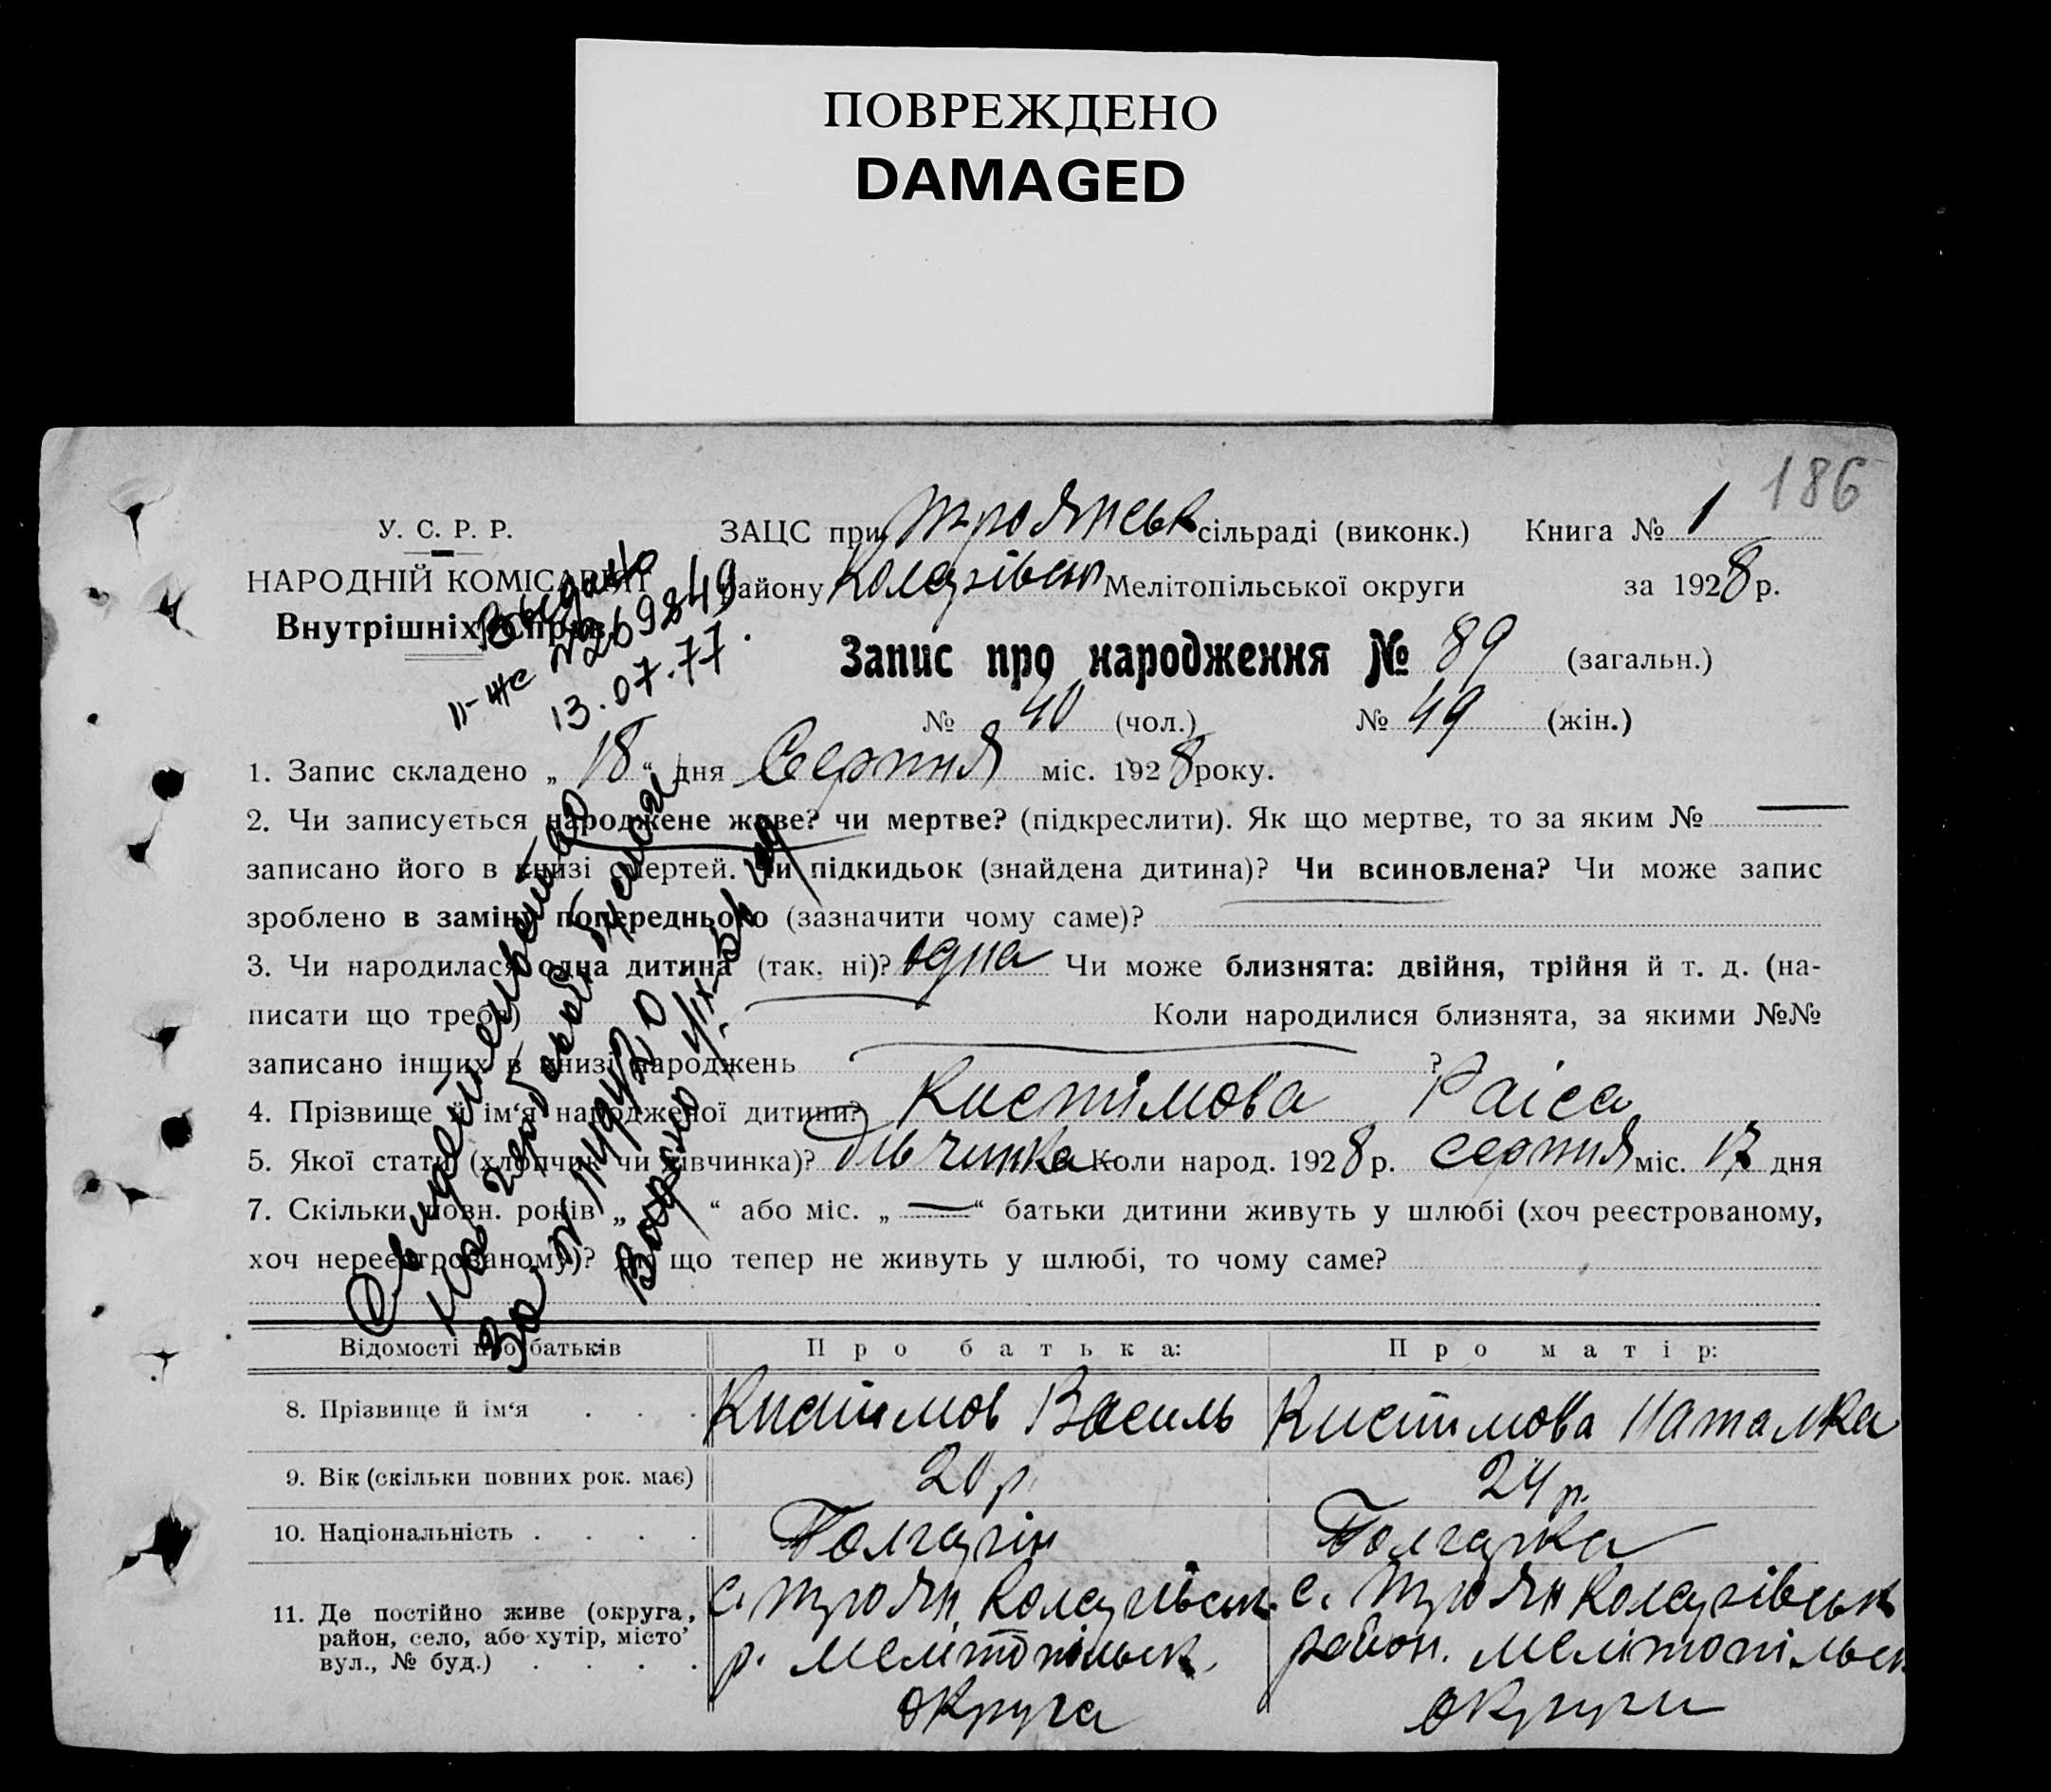 ПОВРЕЖДЕНО
DAMAGED
186
У. С. Р. Р.
НАРОДНІЙ КОМІСАРІЯТ
Внутрішніх Справ
Выдано
п-же № 269849
13.07.77.
ЗАЦС при Троянськ сільраді (виконк.) Книга № 1
району Коларівськ Мелітопільської округи за 1928 р.
Запис про народження № 89 (загальн.)
№ 40 (чол.) № 49 (жін.)
1. Запис складено „18“ дня Серпня міс. 1928 року.
2. Чи записується народжене живе? чи мертве? (підкреслити). Як що мертве, то за яким № —
записано його в книзі смертей. Чи підкидьок (знайдена дитина)? Чи всиновлена? Чи може запис
зроблено в заміну попереднього (зазначити чому саме)?
3. Чи народилася одна дитина (так, ні)? одна Чи може близнята: двійня, трійня й т. д. (на-
писати що треба) Коли народилися близнята, за якими №№
записано інших в книзі народжень ?
4. Прізвище й ім‘я народженої дитини? Кистімова Раіса
5. Якої стати (хлопчик чи дівчинка)? дівчинка Коли народ. 1928 р. серпня міс. 17 дня
7. Скільки повн. років „ “ або міс. „ — “ батьки дитини живуть у шлюбі (хоч реєстрованому,
хоч нереєстрованому)? Як що тепер не живуть у шлюбі, то чому саме?
Свидетельство
на гербовой бумаге
за №
Відомості про батьків Про батька: Про матір:
8. Прізвище й ім‘я . . . Кистимов Василь Кистимова Наталка
9. Вік (скільки повних рок. має) 20 р. 24 р.
10. Національність . . . . Болгарін Болгарка
11. Де постійно живе (округа, район, село, або хутір, місто’ вул., № буд.) . . . .
с. Троян, Коларівськ.
р. Мелітопільськ.
округа
с. Троян Коларівськ
район. Мелітопільськ
округи